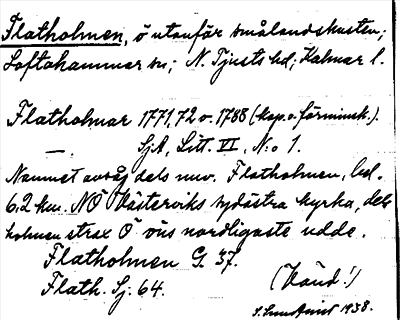 Flatholmen, ö utanför smålandskusten;
Loftahammar sn; N. Tjusts hd; Kalmar l.
Flatholmar 1771,72 o. 1788 (kop. o. förminsk.).
— SjA, Litt. VI, N:o 1.
Namnet avsåg dels nuv. Flatholmen, bel.
6.2 km. NÖ Västerviks sydöstra kyrka, dels
holmen strax Ö om nordligaste udde.
Flatholmen G. 37.
Flath. Sj. 64.
(Vänd!)
S. 1938.